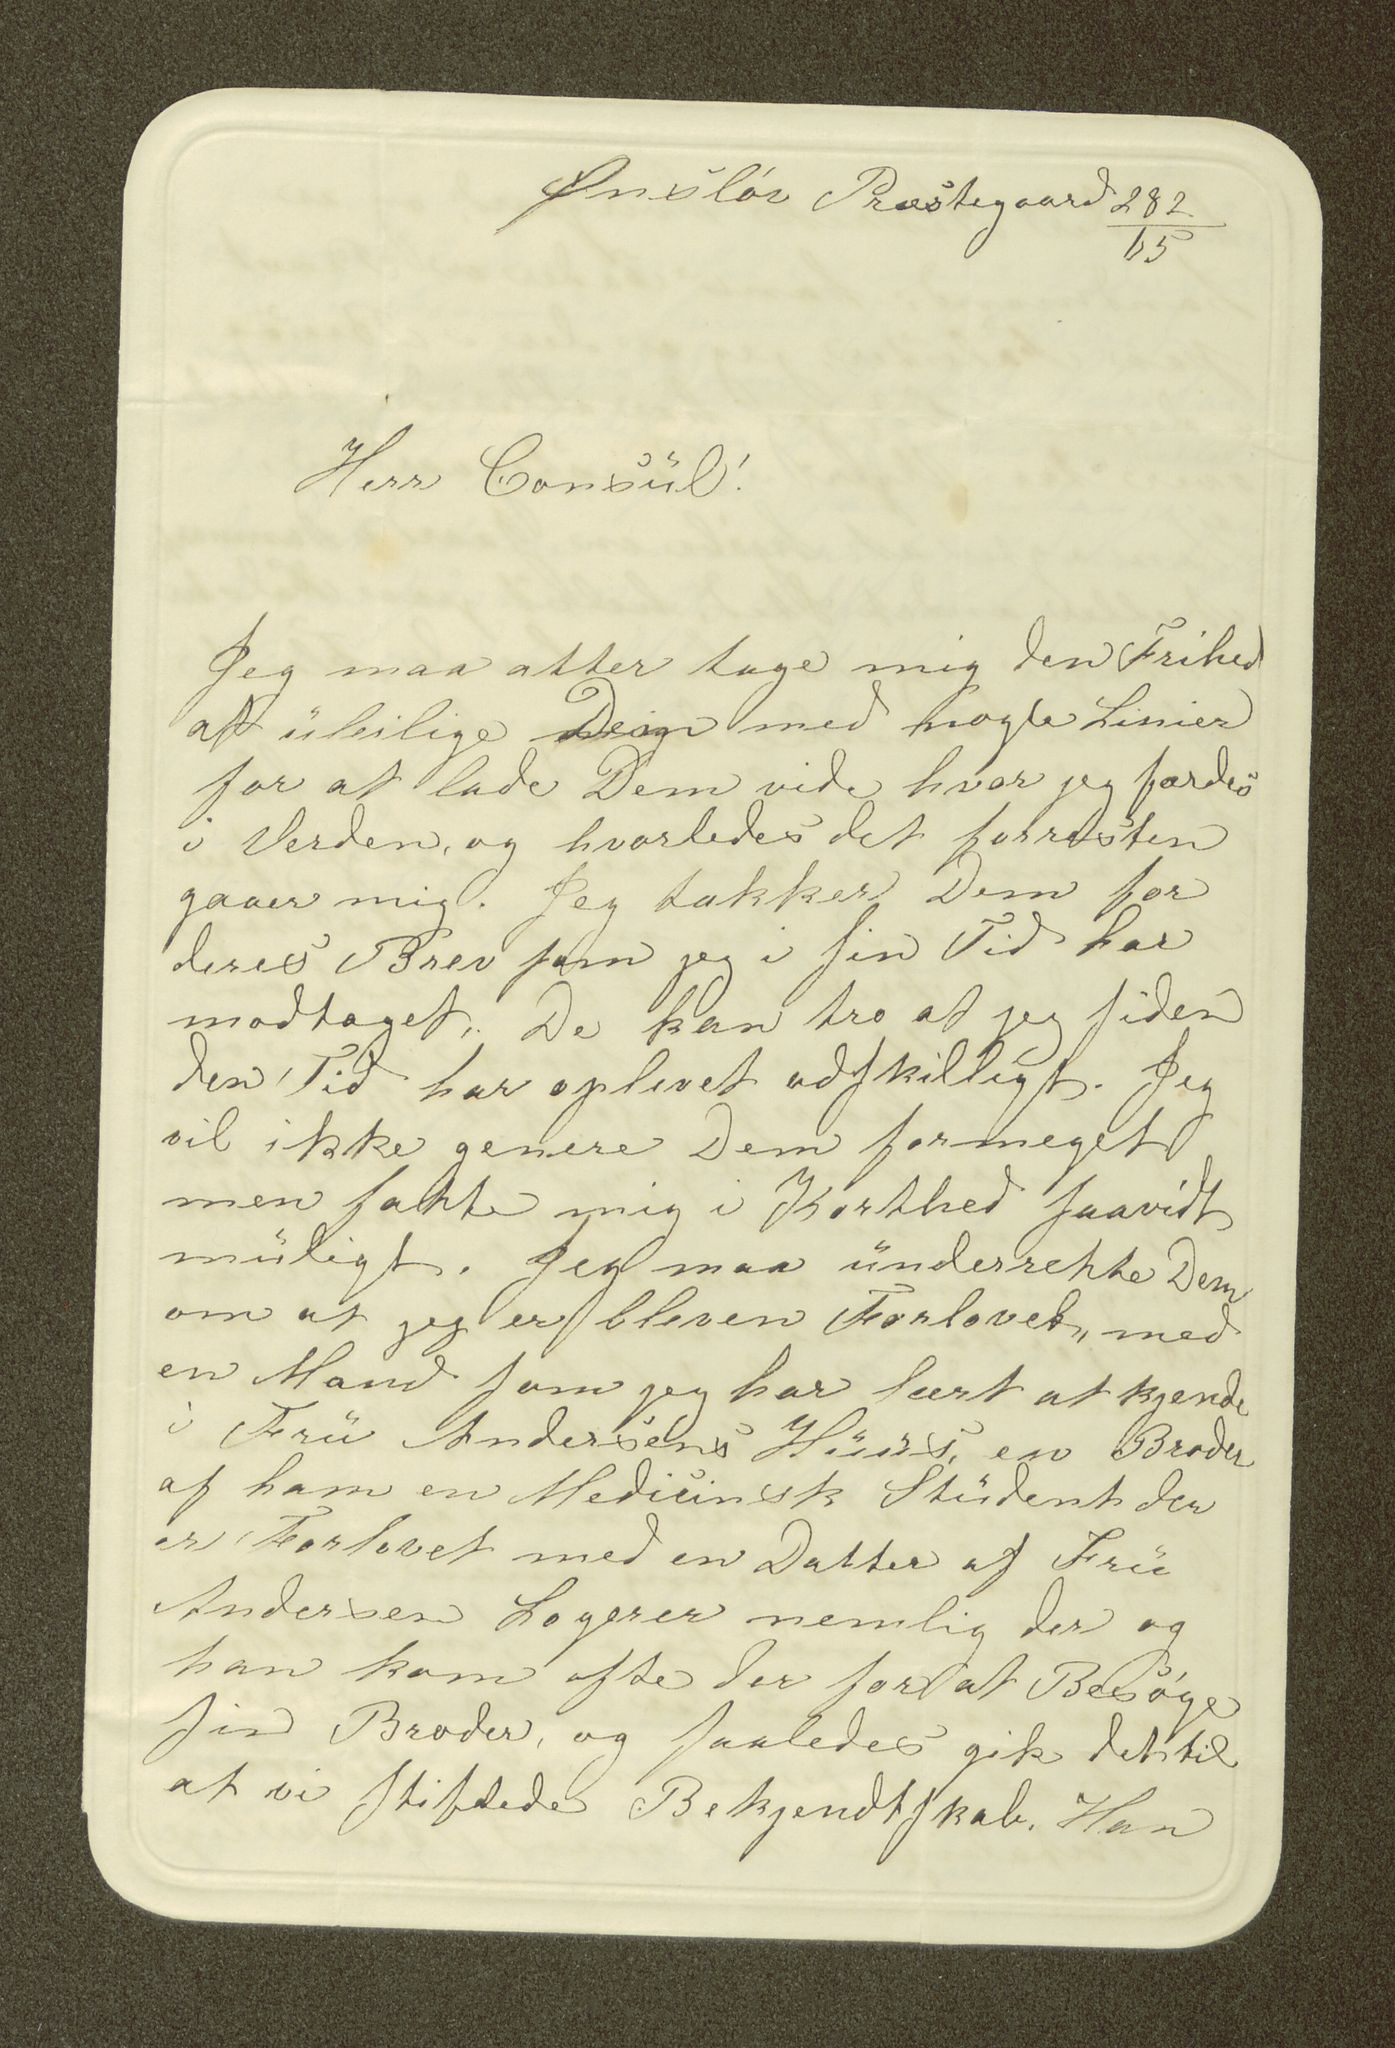 Ønslöv Præstegaard 28 2
65
Herr Consül!
Jeg maa atter tage mig den Frihed
at üleilige Dem med nogle Linier
for at lade Dem vide hvor jeg færdes
i Verden, og hvorledes det forresten
gaaer mig. Jeg takker Dem for
deres Brev som jeg i sin Tid har
modtaget, De kan tro at jeg siden
den Tid har oplevet adskilligt. Jeg
vil ikke genere Dem formeget
men fatte mig i Korthed saavidt
müligt. Jeg maa ünderrette Dem
om at jeg er bleven Forlovet, med
en Mand som jeg har lært at kjende
i Frü Andersens Hüüs, en Broder
af ham en Medicinsk Stüdent der
er Forlovet med en Datter af Frü
Andersen Logerer nemlig der og
han kom ofte der for at Besöge
sin Broder, og saaledes gik det til
at vi stiftede Bekjendtskab. Han